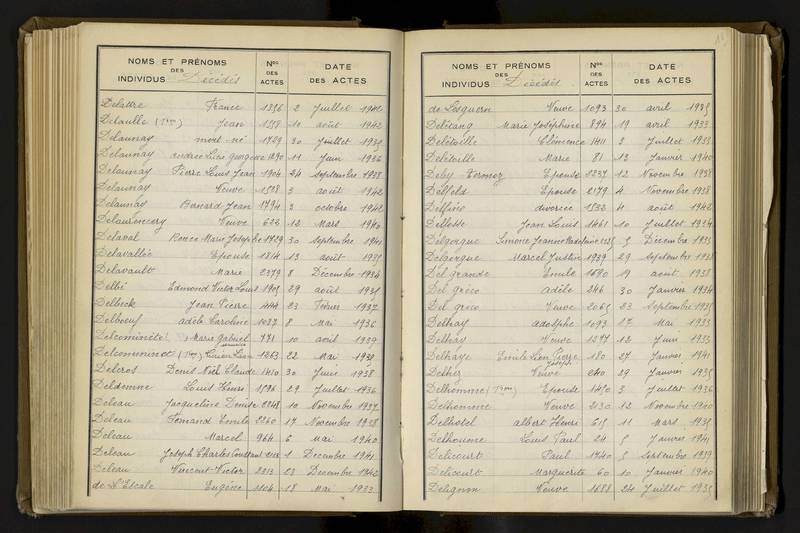 NOMS ET PRÉNOMS DES INDIVIDUS Décédés
Nos DES ACTES
DATE DES ACTES
Delattre France 1396 2 Juillet 1942
Delaulle Jean 1558 10 août 1942
Delaunay mort né 1729 30 Juillet
Delaunay 1290 11 Juin 1936
Delaunay Pierre Louis Jean 1904 24 Septembre 1938
Delaunay Veuve 1528 3 août 1942
Delaunay Bernard Jean 1794 3 octobre 1942
Delaurencery Veuve 622 12 Mars 1940
Delaval Marie Josephe 1729 30 Septembre 1941
Delavallée Epouse 1814 13 août
Delavault Marie 2379 8 Décembre 1936
Delbé Edmond Victor Louis 1905 29 août
Delbeck Jean Pierre 444 23 Février 1937
Delboeuf adèle Caroline 1037 8 Mai 1936
Marie Gabriel 771 10 avril 1939
Delcommincet 1263 22 Mai
Delcros Denis Noël Claude 1410 30 Juin 1938
Deldemne Louis Henri 1596 29 Juillet 1936
Deleau Jacqueline Denise 2248 10 Novembre 1937
Deleau Fernand Emile 2260 17 Novembre 1938
Deleau Marcel 964 6 Mai 1940
Deleau Joseph Charles 1 Décembre 1941
Deleau Vincent Victor 2213 23 Décembre 1942
de L'Escale Eugène 1104 18 Mai 1933
NOMS ET PRÉNOMS DES INDIVIDUS Décédés
Nos DES ACTES
DATE DES ACTES
de Lesguern Veuve 1093 30 avril
Delétang Marie Joséphine 894 19 avril 1933
Delétoille Clémence 1411 2 Juillet
Delétoille Marie 81 13 Janvier 1940
Epouse 2237 12 Novembre 1938
Delfeld Epouse 2179 4 Novembre 1938
Delfino divorcée 1532 4 août 1942
Delfosse Jean Louis 1461 10 Juillet 1934
Delgorgue Simone Jeanne Madeleine 5 Décembre
Delgorgue Marcel Justin 1939 29 Septembre 1938
Del grande Emile 1690 19 août 1938
Del gréco Adèle 246 30 Janvier 1934
Del gréco Veuve 2065 23 Septembre
Delhay adolphe 1093 17 Mai 1933
Delhay Veuve 1277 12 Juin 1933
Delhaye Emile Léon Pierre Joseph 180 27 Janvier 1941
Delhez Veuve 240 29 Janvier
Delhomme Epouse 1450 3 Juillet 1936
Delhomme Veuve 2130 12 Novembre 1940
Delhotel albert Henri 615 11 Mars
Delhoume Louis Paul 24 5 Janvier 1941
Delicourt Paul 1740 5 Septembre 1939
Delicourt Marguerite 60 10 Janvier 1940
Delignon Veuve 1688 24 Juillet